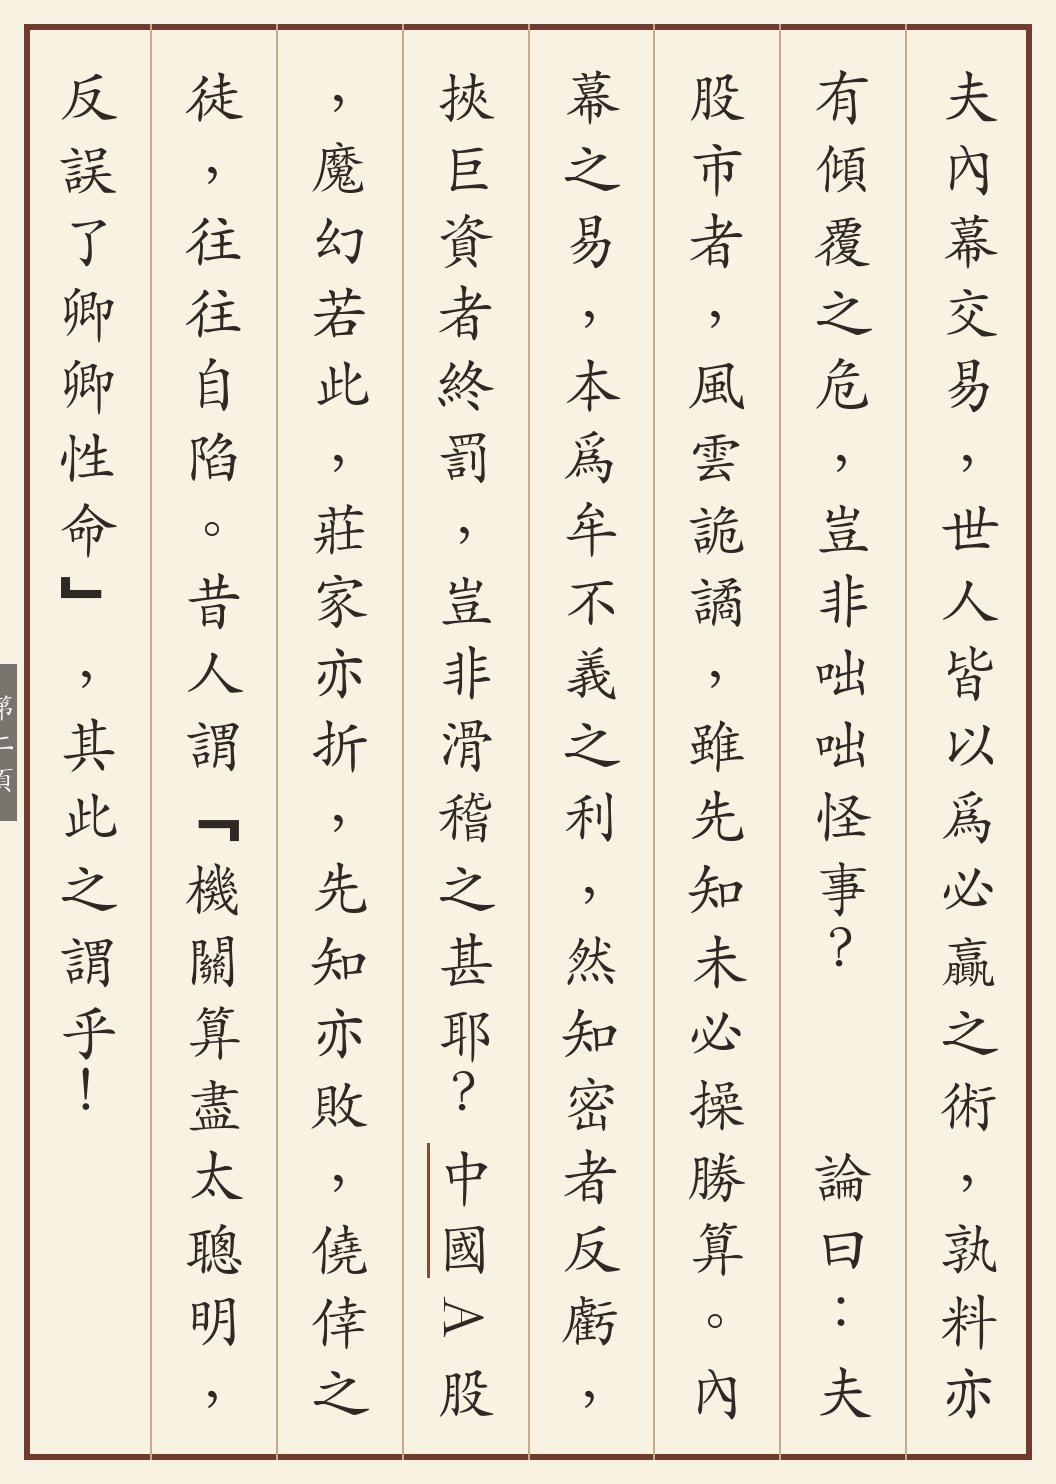 夫內幕交易，世人皆以爲必贏之術，孰料亦
有傾覆之危，豈非咄咄怪事？　　論曰：夫
股市者，風雲詭譎，雖先知未必操勝算。內
幕之易，本爲牟不義之利，然知密者反虧，
挾巨資者終罰，豈非滑稽之甚耶？中國A股
，魔幻若此，莊家亦折，先知亦敗，僥倖之
徒，往往自陷。昔人謂『機關算盡太聰明，
反誤了卿卿性命』，其此之謂乎！
第二頁